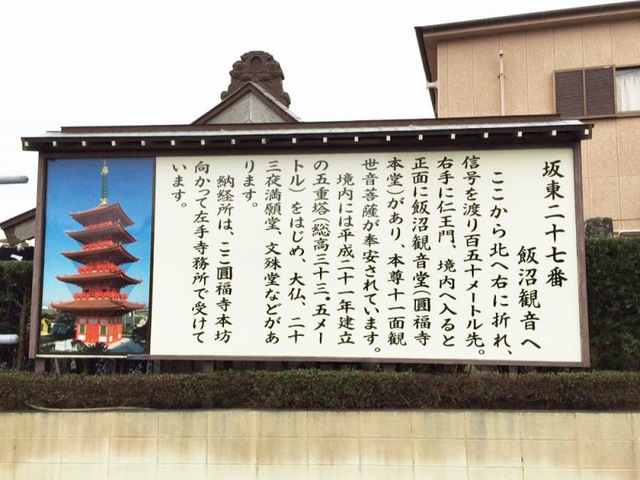 坂東二十七番
飯沼観音へ
ここから北へ右に折れ、
信号を渡り百五十メートル先。
右手に仁王門、境内へ入ると
正面に飯沼観音堂（圓福寺
本堂）があり、本尊十一面観
世音菩薩が奉安されています。
境内には平成二十一年建立
の五重塔（総高三十三．五メー
トル）をはじめ、大仏、二十
三夜満願堂、文殊堂などがあ
ります。
納経所は、ここ圓福寺本坊
向かって左手寺務所で受けて
います。